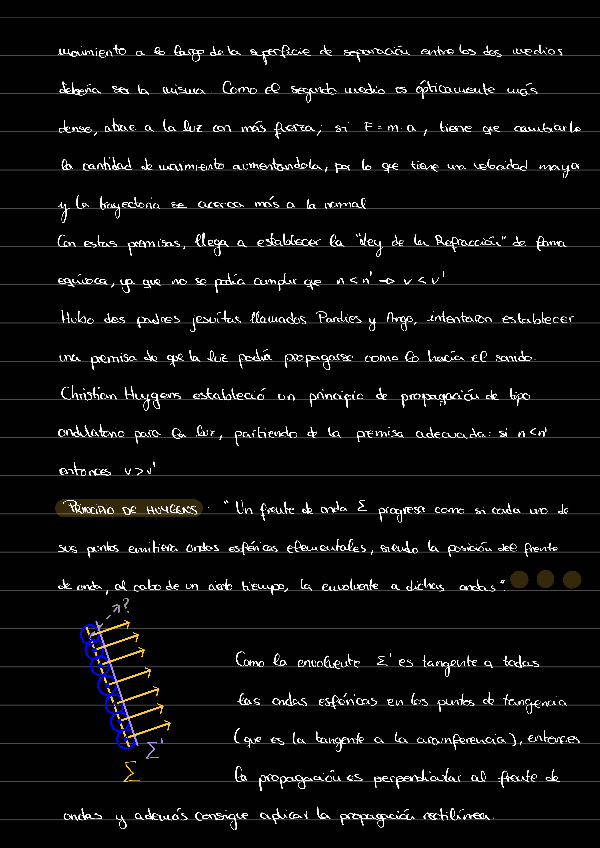 movimiento a lo largo de la superficie de separación entre los dos medios
debería ser la misma. Como el segundo medio es ópticamente más
denso, atrae a la luz con más fuerza; si F = m·a, tiene que cambiarle
la cantidad de movimiento aumentandola, por lo que tiene una velocidad mayor
y la trayectoria se acerca más a la normal
Con estas premisas, llega a establecer la "Ley de la Refracción" de forma
equívoca, ya que no se podía cumplir que n < n' → v < v'
Hubo dos padres jesuitas llamados Pardies y Ango, intentaron establecer
una premisa de que la luz podría propagarse como lo hacía el sonido.
Christian Huygens estableció un principio de propagación de tipo
ondulatorio para la luz, partiendo de la premisa adecuada: si n < n'
entonces v > v'
"PRINCIPIO DE HUYGENS: "Un frente de onda Σ progresa como si cada uno de
sus puntos emitiera ondas esféricas elementales, siendo la posición del frente
de onda, al cabo de un cierto tiempo, la envolvente a dichas ondas".
?
Como la envolvente Σ' es tangente a todas
las ondas esféricas en los puntos de tangencia
(que es la tangente a la circunferencia), entonces
la propagación es perpendicular al frente de
ondas y además consigue aplicar la propagación rectilínea.
Σ'
Σ